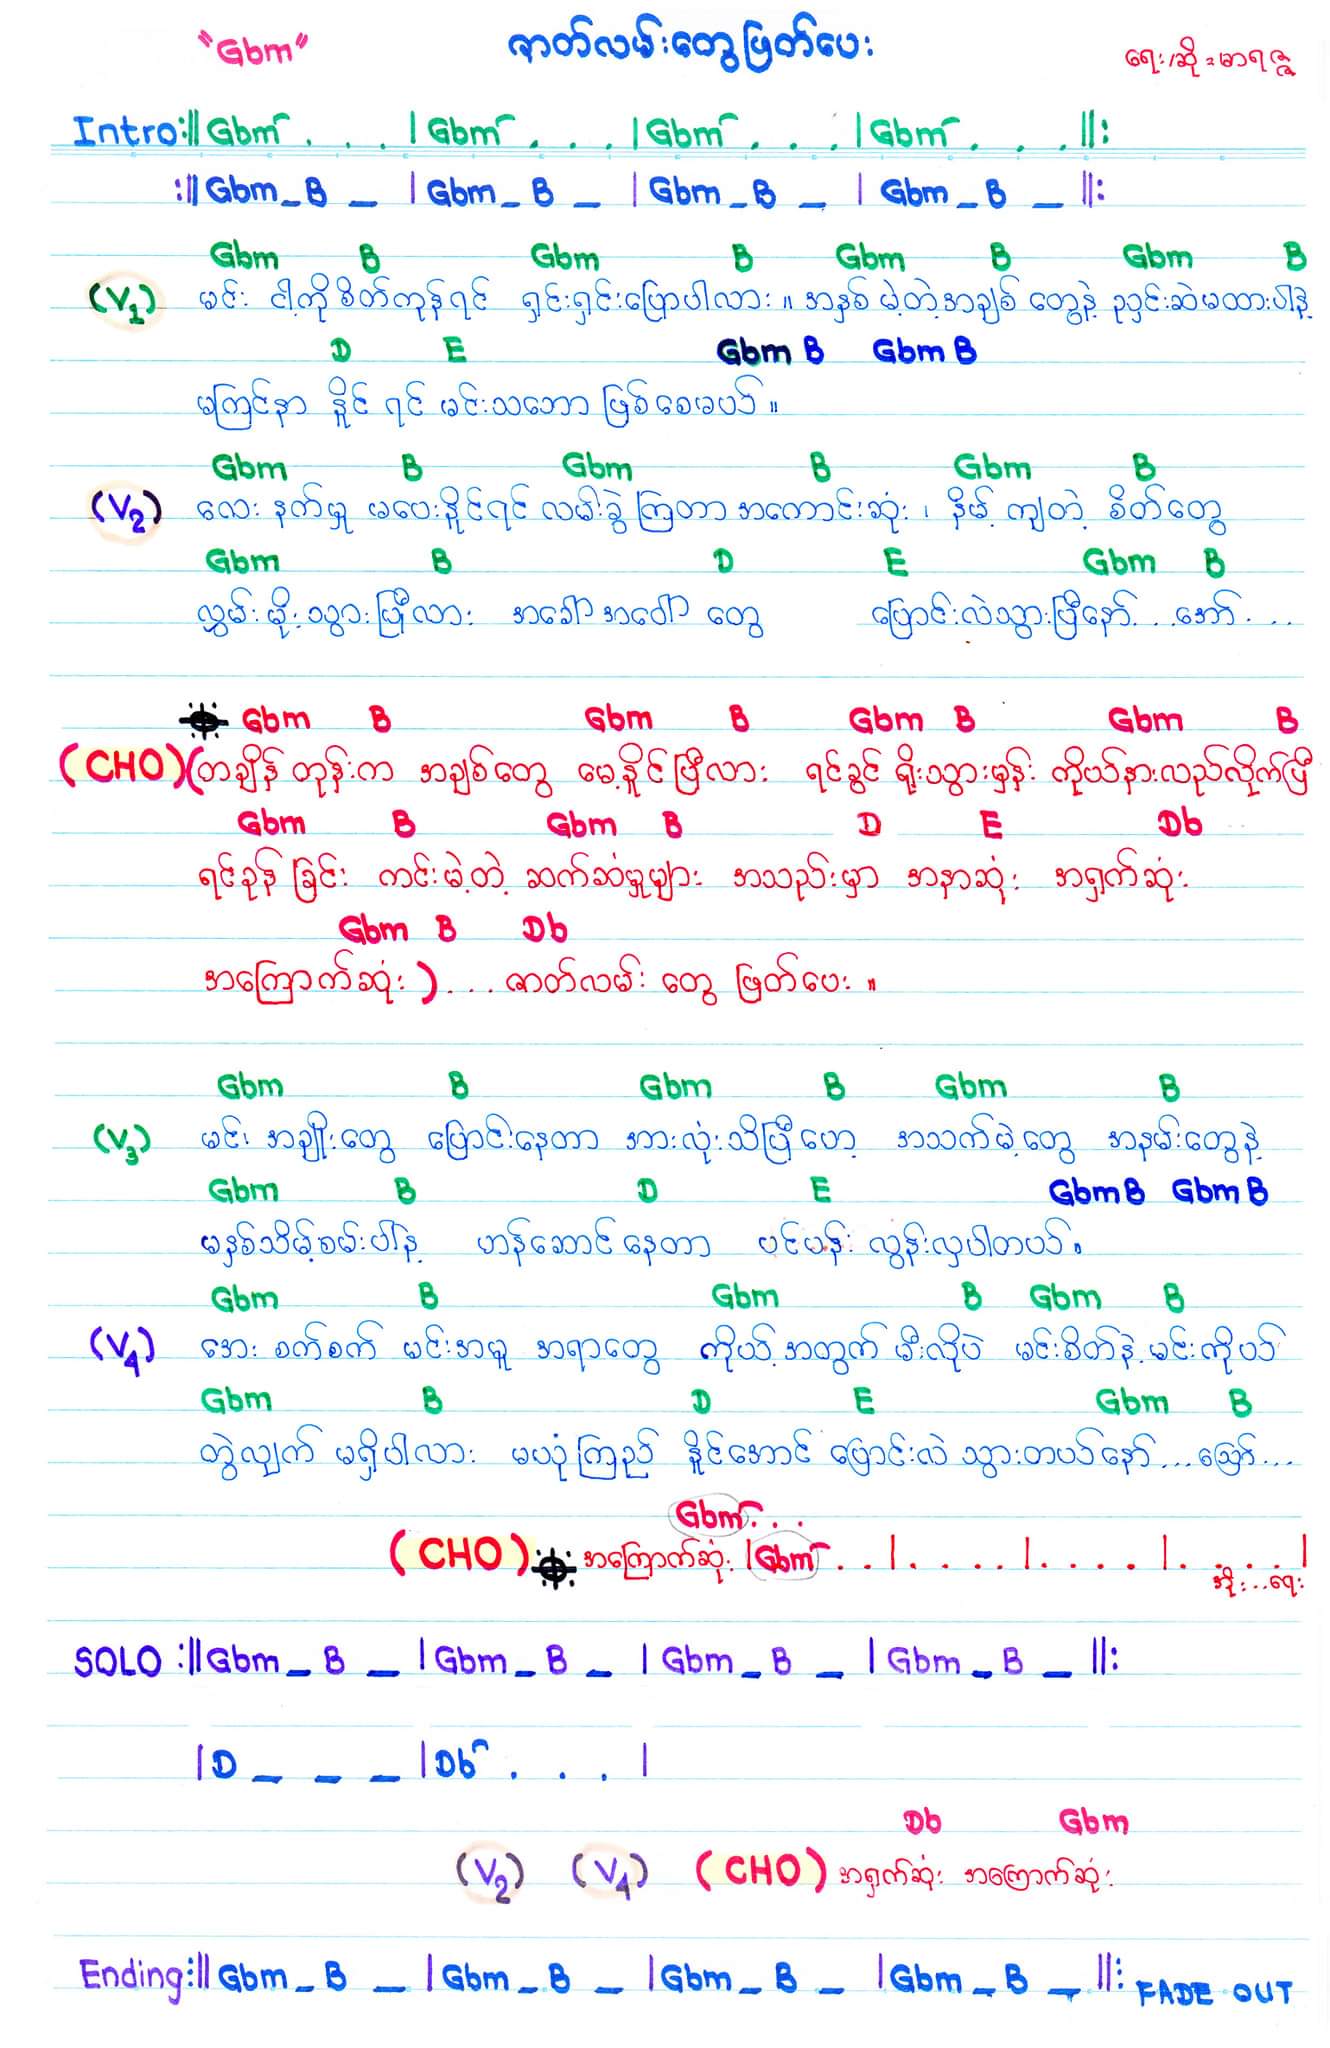 "Gbm" ဇာတ်လမ်းတွေဖြတ်ပေး ရေး/ဆို = မာရဇ္ဇ
Intro :|| Gbm . . . | Gbm . . . | Gbm . . . | Gbm . . . ||:
:|| Gbm _ B _ | Gbm _ B _ | Gbm _ B _ | Gbm _ B _ ||:
Gbm B Gbm B Gbm B Gbm B
(V1) မင်း ငါ့ကို စိတ်ကုန်ရင် ရှင်းရှင်းပြောပါလား ။ အနှစ် မဲ့တဲ့အချစ် တွေနဲ့ ညှင်းဆဲမထားပါနဲ့
D E Gbm B Gbm B
မကြင်နာ နိူင် ရင် မင်းသဘော ဖြစ်စေမယ် ။
Gbm B Gbm B Gbm B
(V2) လေး နက်မှု မပေးနိူင်ရင် လမ်းခွဲ ကြတာ အကောင်းဆုံး ၊ နိမ့် ကျတဲ့ စိတ်တွေ
Gbm B D E Gbm B
လွှမ်း မိုး သွား ပြီလား အခေါ် အဝေါ် တွေ ပြောင်းလဲသွားပြီနော် . . . အော် . . .
Gbm B Gbm B Gbm B Gbm B
(CHO) (တချိန် တုန်းက အချစ်တွေ မေ့နိူင် ပြီလား ရင်ခွင် ရိုးသွားမှန်း ကိုယ်နားလည်လိုက်ပြီ
Gbm B Gbm B D E Db
ရင်ခုန် ခြင်း ကင်းမဲ့တဲ့ ဆက်ဆံမှုများ အသည်းမှာ အနာဆုံး အရှက်ဆုံး
Gbm B Db
အကြောက်ဆုံး ) . . . ဇာတ်လမ်း တွေ ဖြတ်ပေး ။
Gbm B Gbm B Gbm B
(V3) မင်း အချိုးတွေ ပြောင်းနေတာ အားလုံးသိပြီ ဟော့ အသက်မဲ့တွေ အနမ်းတွေနဲ့
Gbm B D E Gbm B Gbm B
မနှစ်သိမ့်စမ်းပါနဲ့ ဟန်ဆောင် နေတာ ပင်ပန်း လွန်းလှပါတယ် ။
Gbm B Gbm B Gbm B
(V4) အေး စက်စက် မင်းအမူ အရာတွေ ကိုယ့် အတွက် မီးလိုပဲ မင်းစိတ်နဲ့ မင်းကိုယ်
Gbm B D E Gbm B
တွဲလျှက် မရှိပါလား မယုံကြည် နိူင်အောင် ပြောင်းလဲ သွားတယ်နော် . . . ဪ . . .
Gbm . . .
(CHO) အကြောက်ဆုံး | Gbm . . | . . . . | . . . . | . . . . |
အိုး . . ရေး
SOLO :|| Gbm _ B _ | Gbm _ B _ | Gbm _ B _ | Gbm _ B _ ||:
| D _ _ _ | Db . . . |
Db Gbm
(V2) (V4) (CHO) အရှက်ဆုံး အကြောက်ဆုံး
Ending :|| Gbm _ B _ | Gbm _ B _ | Gbm _ B _ | Gbm _ B _ ||: FADE OUT